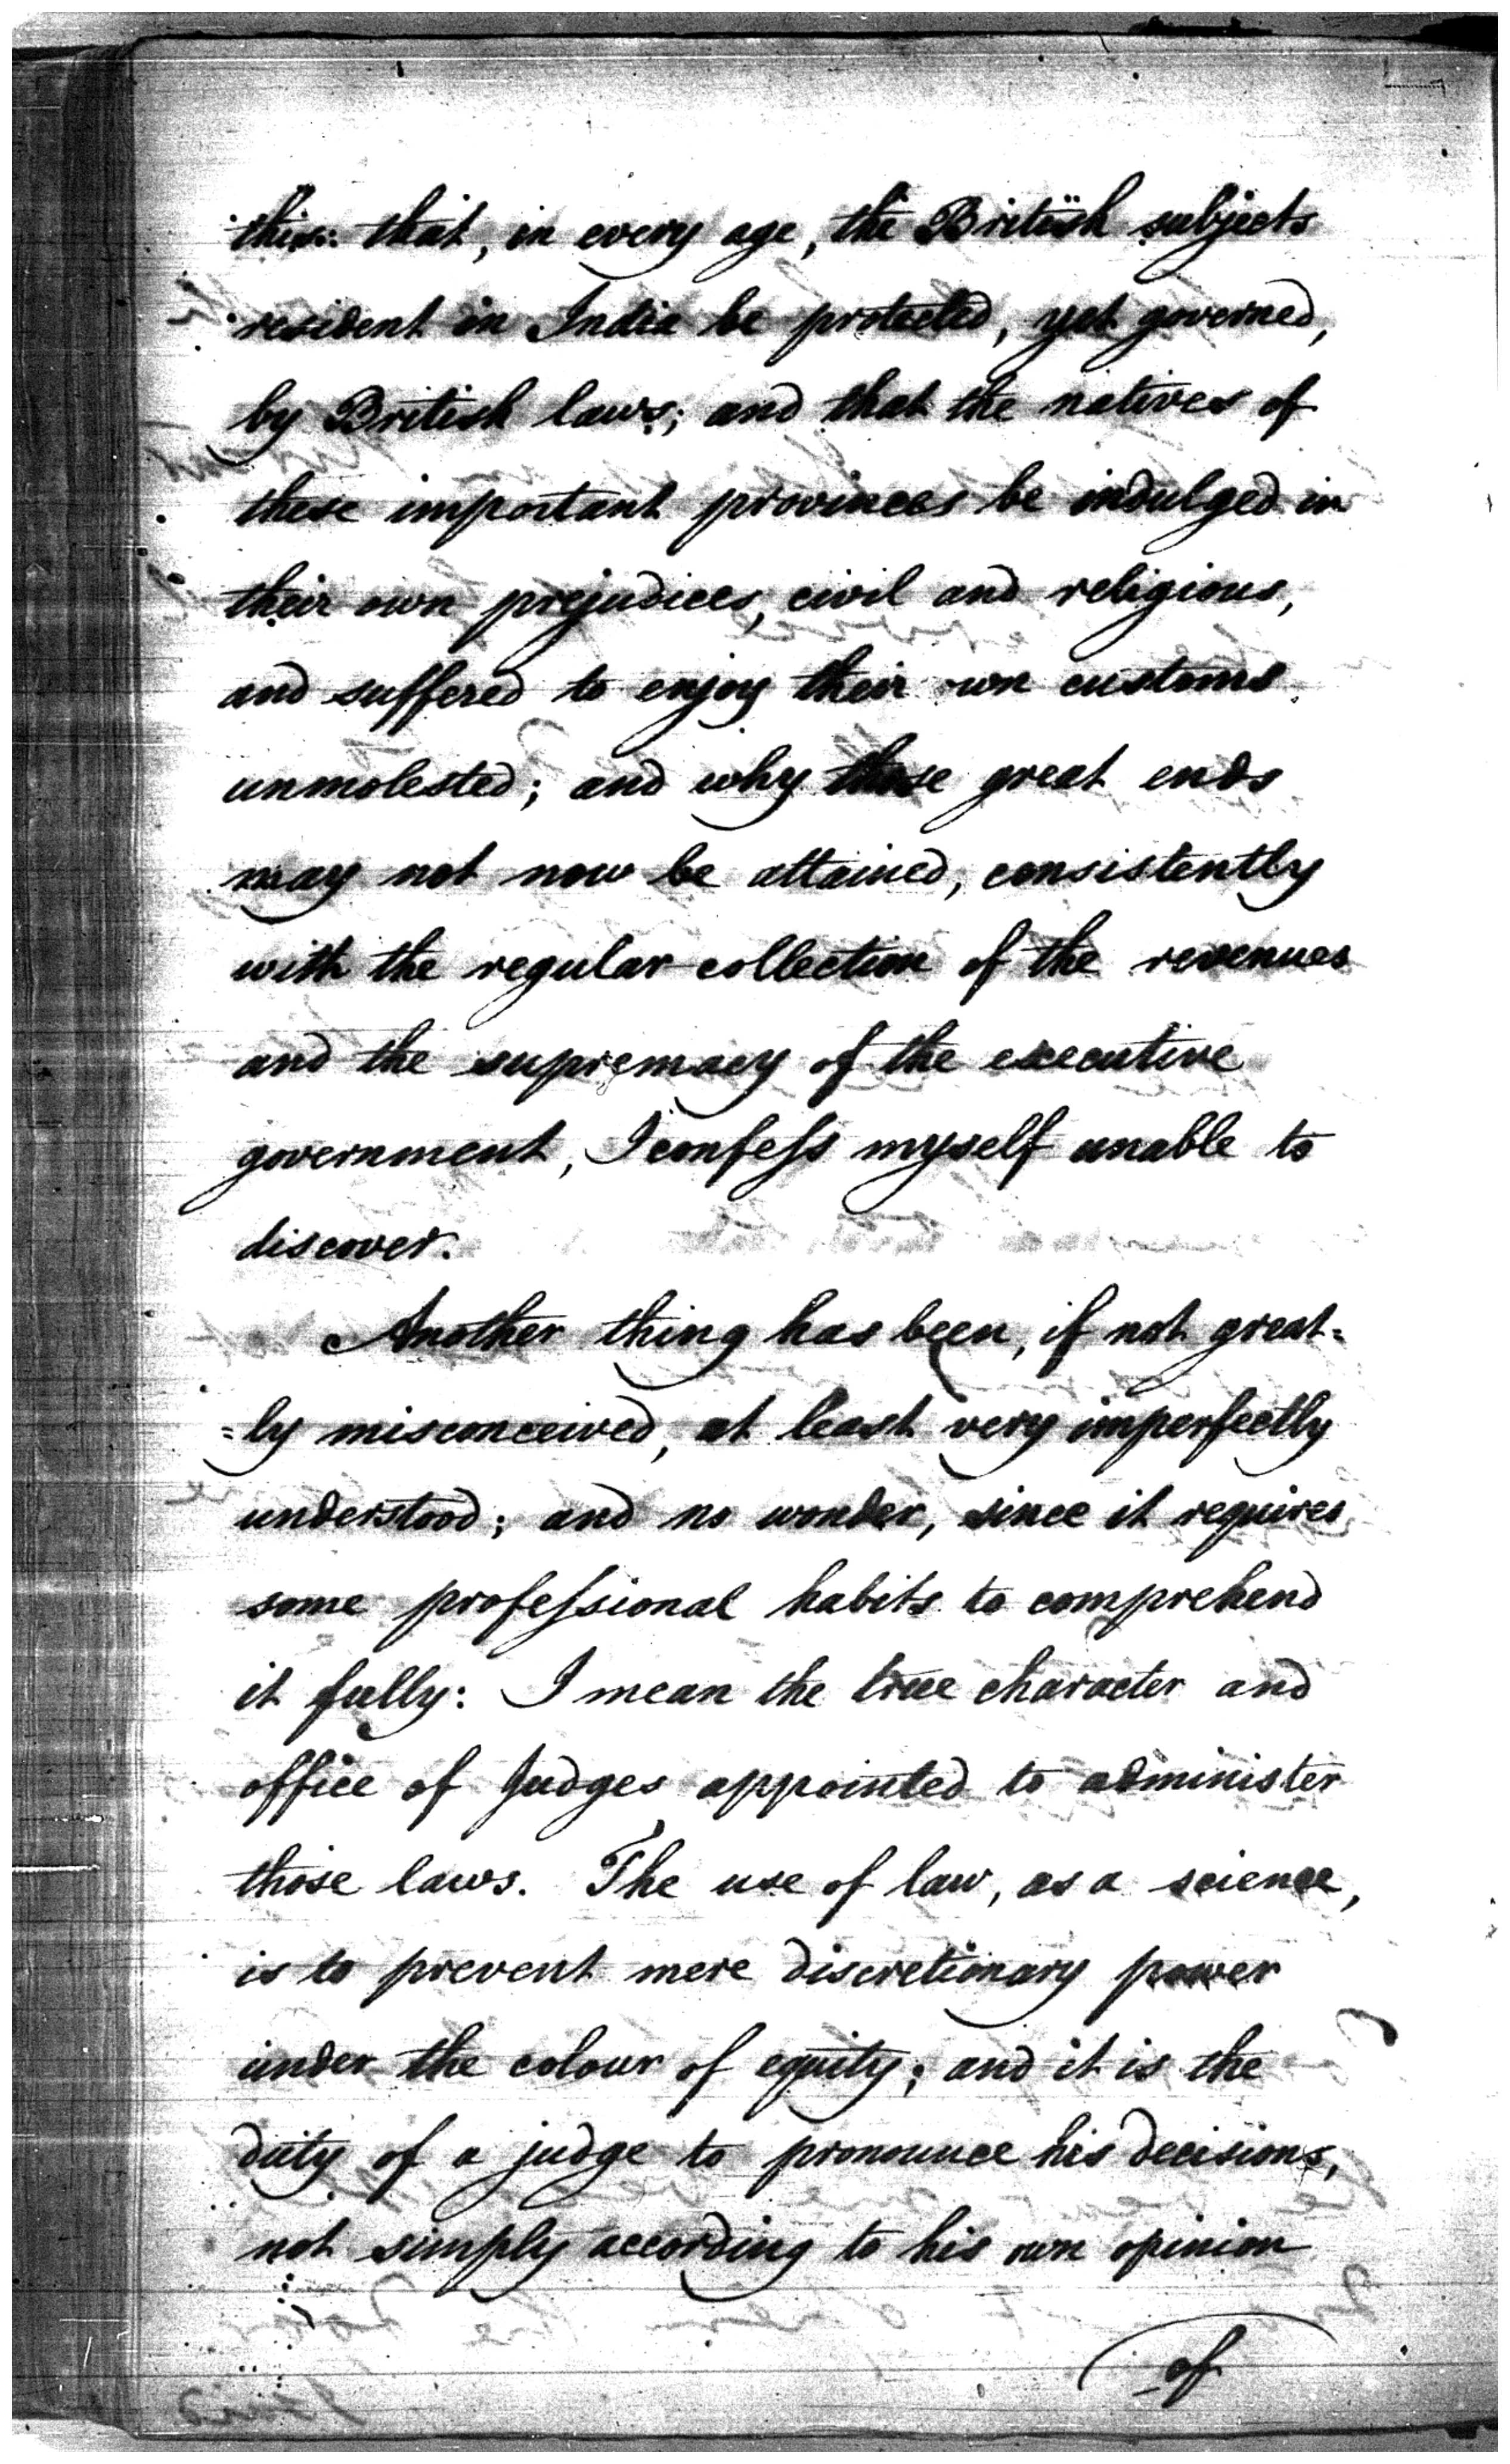 this: that, in every age, the British subjects
resident in India be protected, yet governed,
by British laws; and that the natives of
these important provinces be indulged in
their own prejudices, civil and religious,
and suffered to enjoy their own customs
unmolested; and why those great ends
may not now be attained, consistently
with the regular collection of the revenues
and the supremacy of the executive
government, I confeſs myself unable to
discover.
Another thing has been, if not great=
=ly misconceived, at least very imperfectly
understood; and no wonder, since it requires
some profeſsional habits to comprehend
it fully: I mean the true character and
office of Judges appointed to administer
those laws. The use of law, as a science,
is to prevent mere discretionary power
under the colour of equity; and it is the
duty of a judge to pronounce his decisions,
not simply according to his own opinion
of